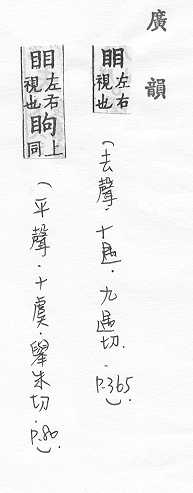 廣韻
䀠左右視也
(去聲．十遇．九遇切．P.365)
䀠左右視也眗上同
(平聲．十虞．舉朱切．P.80)